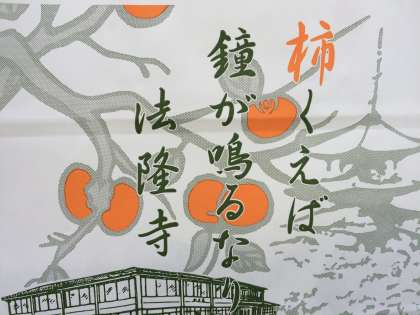 柿くえば
鐘が鳴るなり
法隆寺